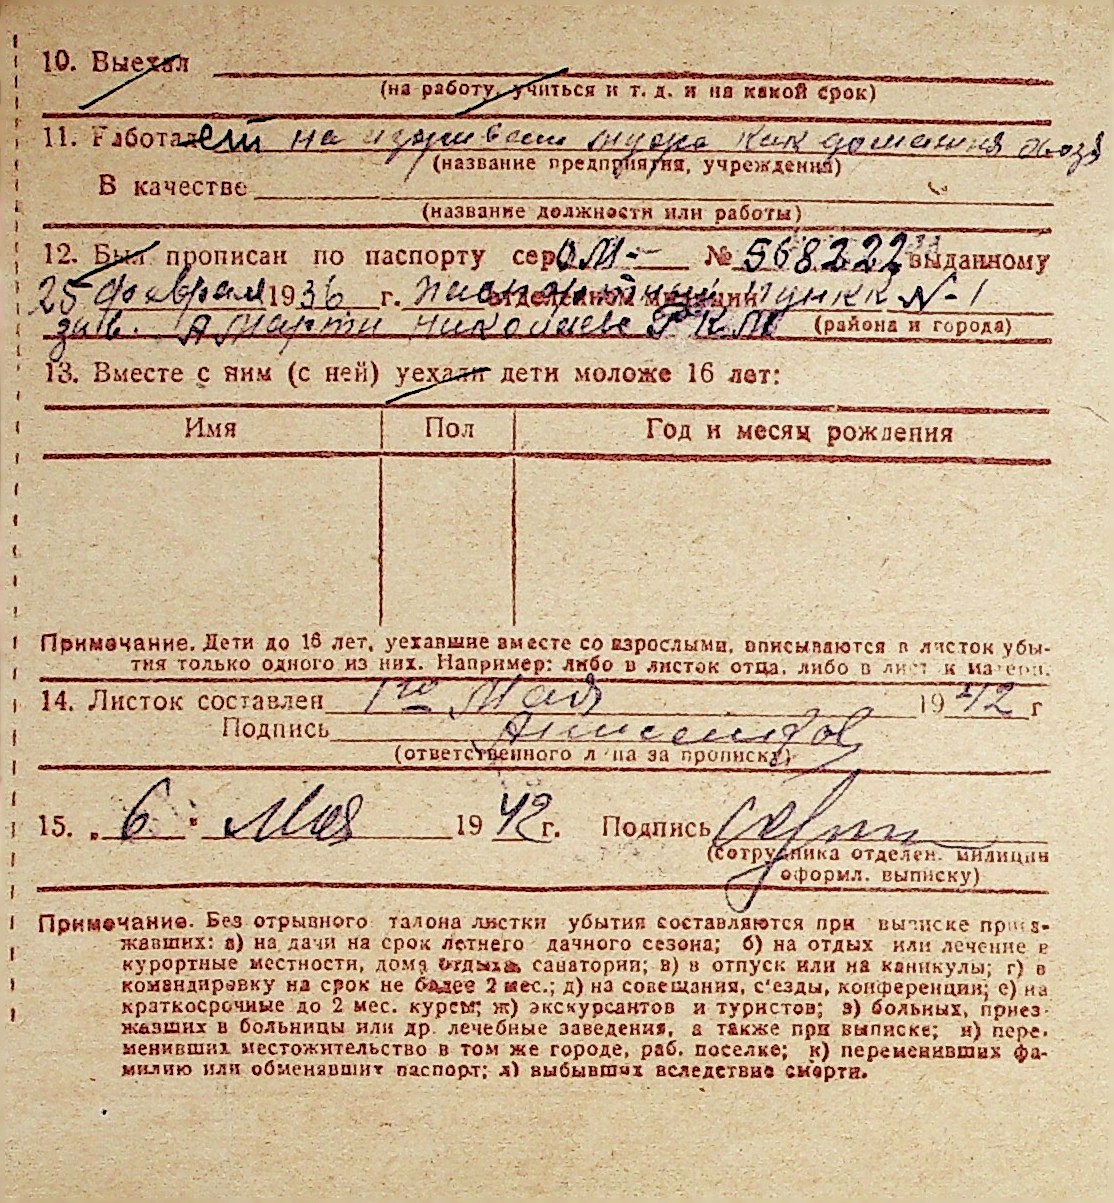 10. Выехал
(на работу, учиться и т. д. и на какой срок)
11. Работает на иждивении мужа как домашняя хозя
(название предприятия, учреждения)
В качестве
(название должности или работы)
12. Был прописан по паспорту сер ОМ- № 568222 выданному
25 февраля 1936 г. отделением милиции пункт N-1
РКМ (района и города)
13. Вместе с ним (с ней) уехали дети моложе 16 лет:
Имя Пол Год и месяц рождения
Примечание. Дети до 16 лет, уехавшие вместе со взрослыми, вписываются в листок убы-
тия только одного из них. Например: либо в листок отца, либо в листок матери.
14. Листок составлен 1го Мая 1942 г
Подпись
(ответственного лица за прописку)
15. „ 6 " Мая 1942 г. Подпись
(сотрудника отделен. милиции
оформл. выписку)
Примечание. Без отрывного талона листки убытия составляются при выписке приез-
жавших: а) на дачи на срок летнего дачного сезона; б) на отдых или лечение в
курортные местности, дома отдыха, санатории; в) в отпуск или на каникулы; г) в
командировку на срок не более 2 мес.; д) на совещания, с'езды, конференции; е) на
краткосрочные до 2 мес. курсы; ж) экскурсантов и туристов; з) больных, приез-
жавших в больницы или др. лечебные заведения, а также при выписке; и) пере-
менивших местожительство в том же городе, раб. поселке; к) переменивших фа-
милию или обменявших паспорт; л) выбывших вследствие смерти.